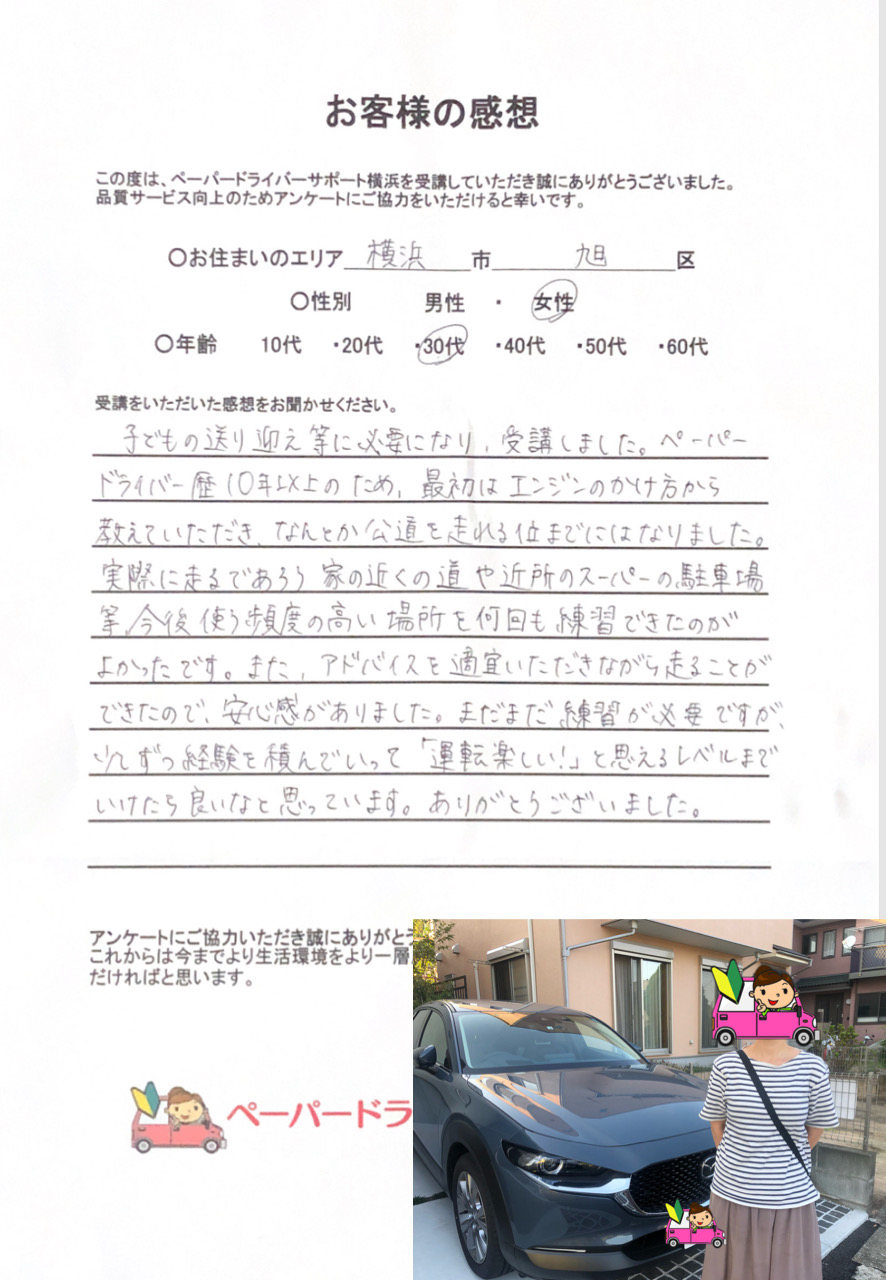 お客様の感想
この度は、ペーパードライバーサポート横浜を受講していただき誠にありがとうございました。
品質サービス向上のためアンケートにご協力をいただけると幸いです。
〇お住まいのエリア 横浜 市 旭 区
〇性別 男性 ・ 女性
〇年齢 10代 ・20代 ・30代 ・40代 ・50代 ・60代
受講をいただいた感想をお聞かせください。
子どもの送り迎え等に必要になり、受講しました。ペーパー
ドライバー歴10年以上のため、最初はエンジンのかけ方から
教えていただき、なんとか公道を走れる位までにはなりました。
実際に走るであろう家の近くの道や近所のスーパーの駐車場
等、今後使う頻度の高い場所を何回も練習できたのが
よかったです。また、アドバイスを適宜いただきながら走ることが
できたので、安心感がありました。まだまだ練習が必要ですが、
少しずつ経験を積んでいって「運転楽しい!」と思えるレベルまで
いけたら良いなと思っています。ありがとうございました。
アンケートにご協力いただき誠にありがとう
これからは今までより生活環境をより一層
だければと思います。
ペーパードラ